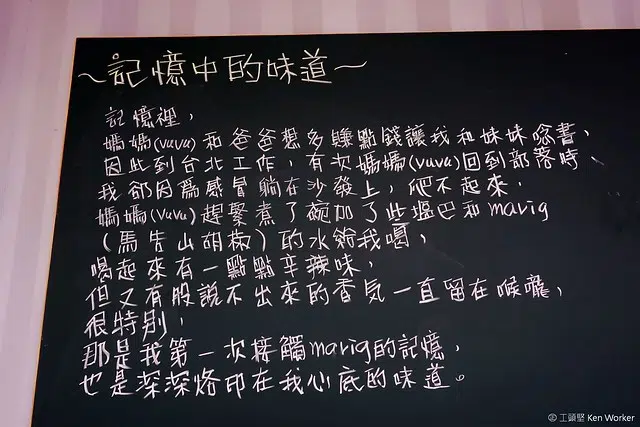 ~記憶中的味道~
記憶裡，
媽媽(vuvu)和爸爸想多賺點錢讓我和妹妹唸書、
因此到台北工作，有次媽媽(vuvu)回到部落時、
我卻因為感冒躺在沙發上，爬不起來，
媽媽(vuvu)趕緊煮了碗加了些塩巴和marig
(馬告山胡椒)的水給我喝，
喝起來有一點點辛辣味，
但又有股說不出來的香気一直留在喉嚨，
很特別，
那是我第一次接觸marig的記憶，
也是深深烙印在我心底的味道。
工頭堅 Ken Worker